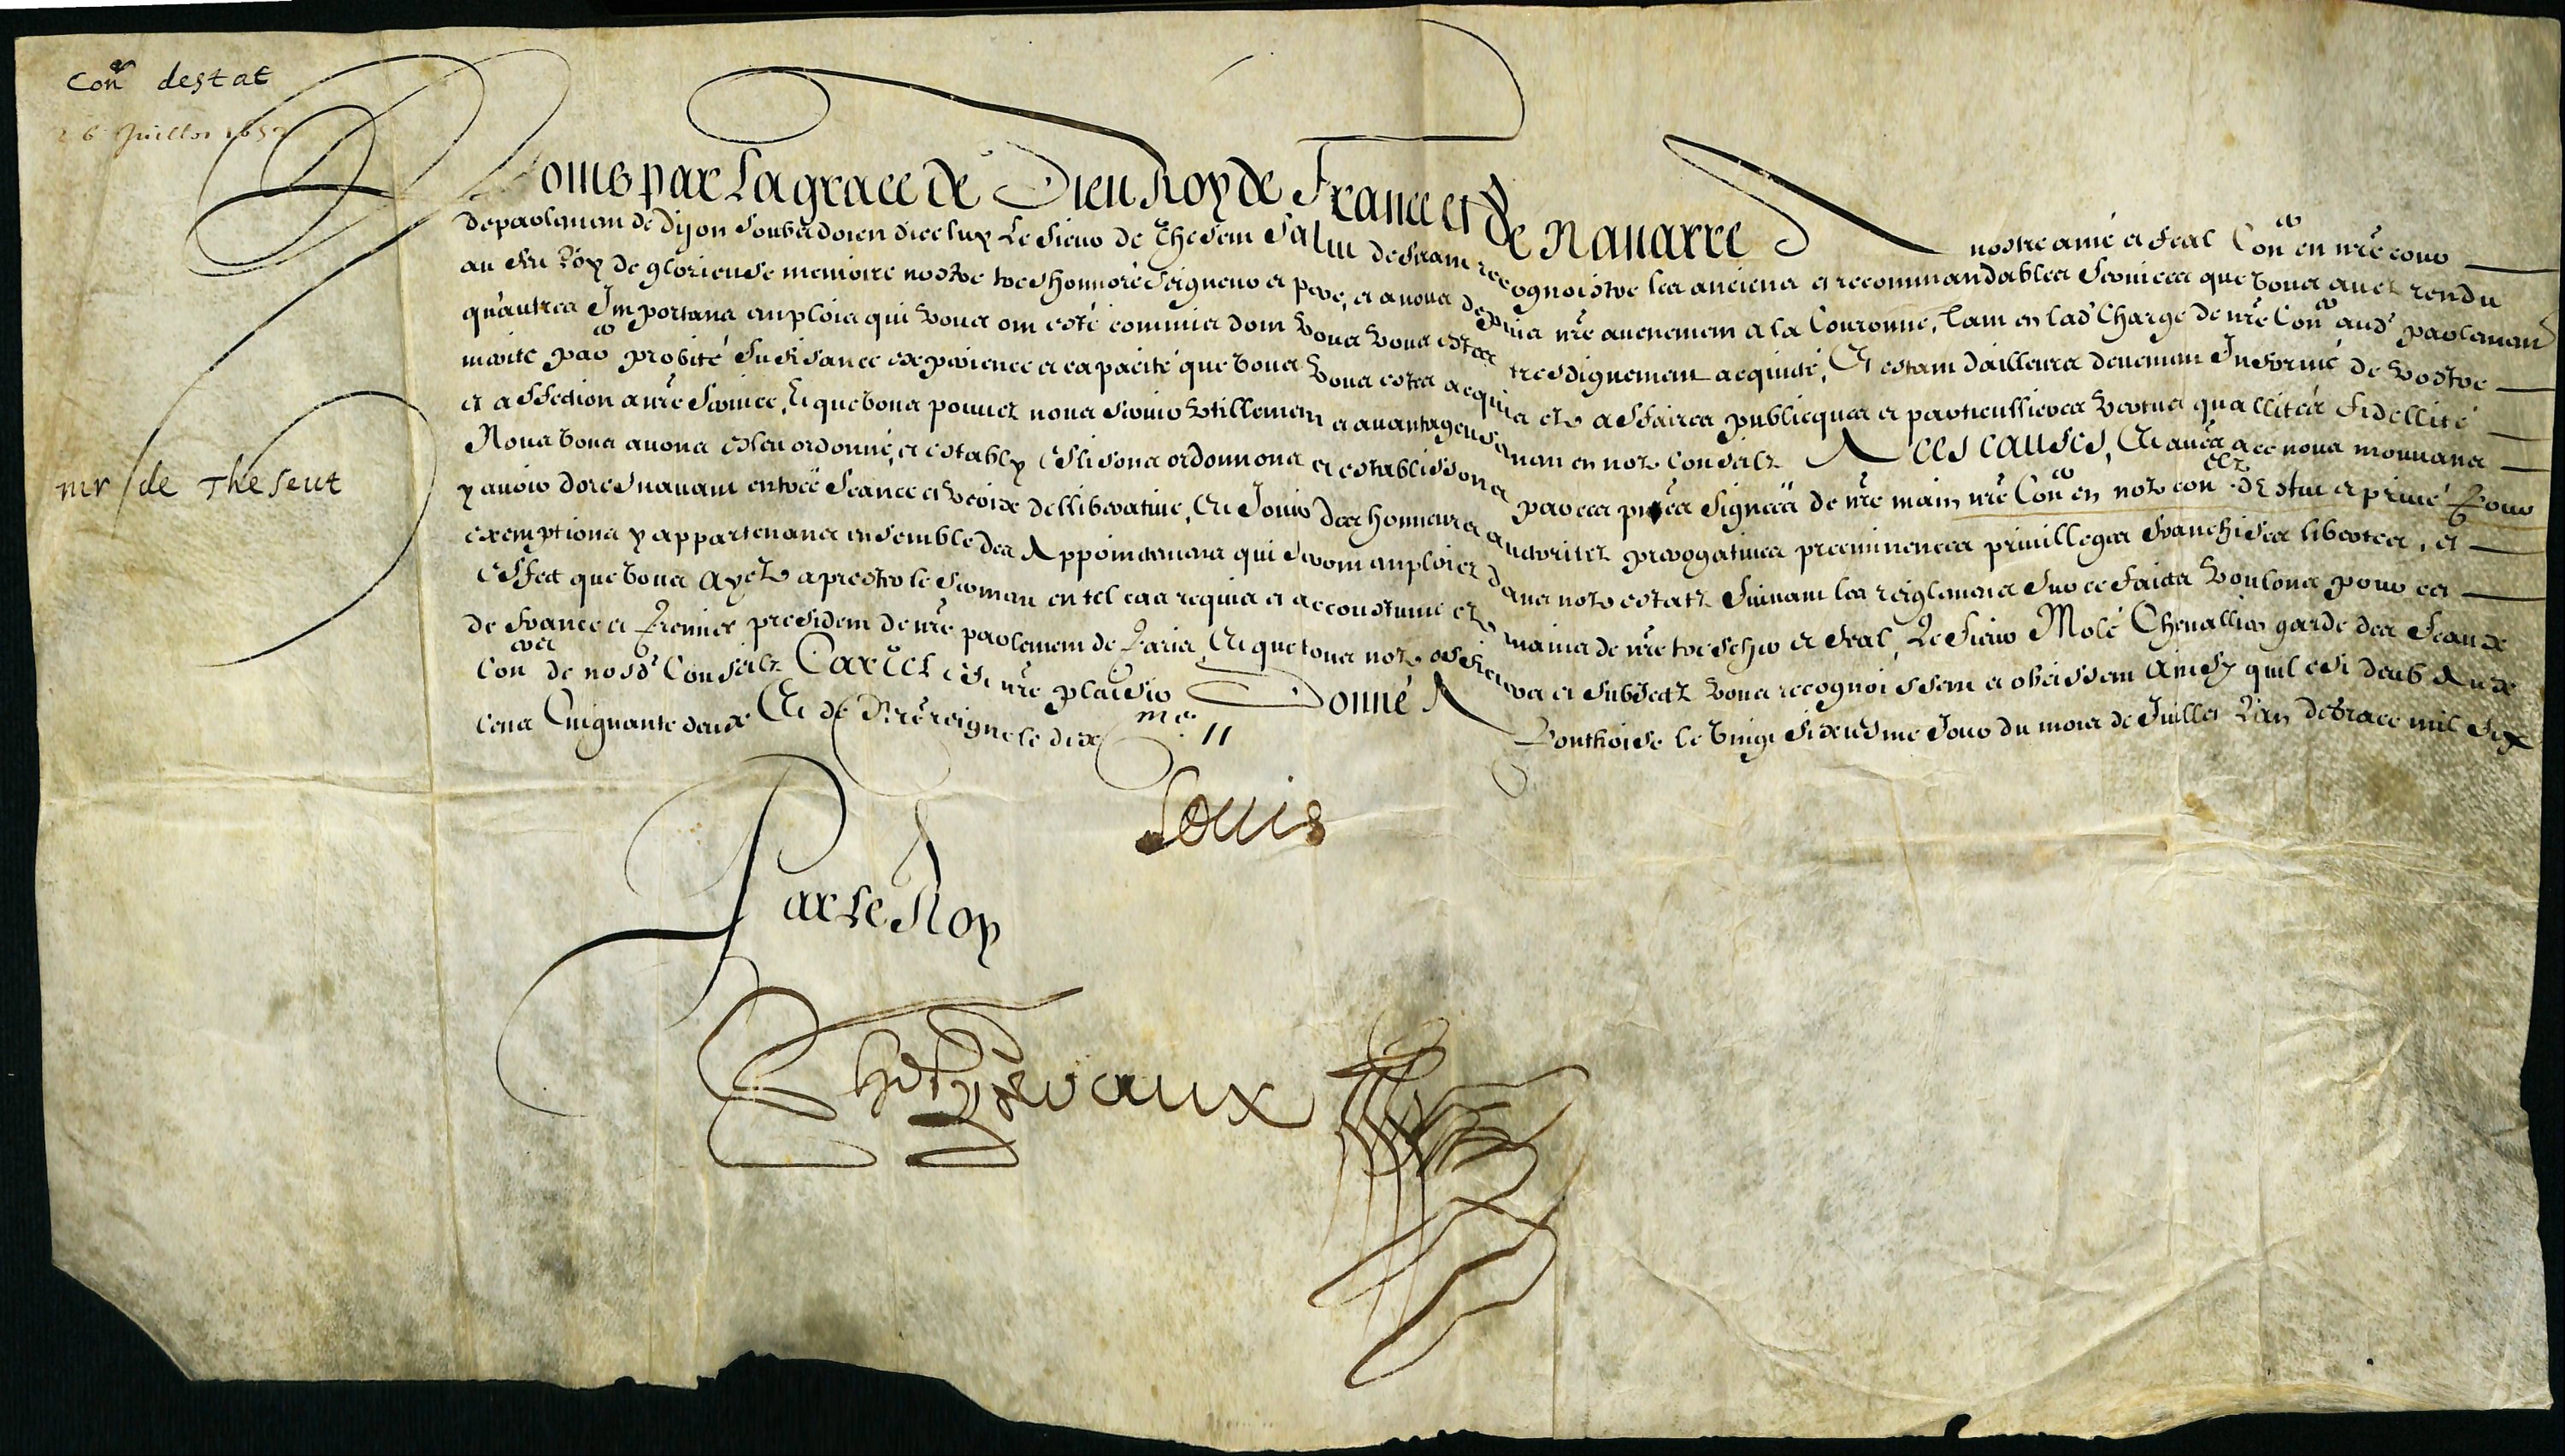 Con^er destat
26 Juillet 1652
mr de Theseut
Louis par la grace de Dieu Roy de France et de Navarre A nostre amé et feal Con^er en nre cour
de parlement de Dijon soubz doien dicelluy Le sieur de Thesent Salut desirant recognoistre les anciens et recommandables services que vous avez rendu
au feu Roy de glorieuse memoire nostre tres honnoré seigneur et pere, et a nous depuis nre avenement a la Couronne, Tant en lad^e Charge de nre Con^er aud^t parlement
qu'autres Importans emplois qui vous ont esté commis dont vous vous estes tres dignement acquitté, Et estant dailleurs deuement Informé de vostre
merite par probité sufisance experience et capacité que vous vous estes acquis ez affaires publicques et particullieres vertus quallitéz fidellité
et affection a nre service, Et que vous pouvez nous servir utillement et avantageusement en noz Conseilz A ces causes, Et autres a ce nous mouvans
Nous vous avons esleu ordonné et estably Eslisons ordonnons et establissons par ces pntes signées de nre main nre Con^er en noz con^eilz destat et privé Pour
y avoir doresnavant entrée seance et voix dellibérative, Et Jouir des honneurs auctoritez prerogatives preeminences privilleges franchises libertez, et
exemptions y appartenans ensemble des Appointemens qui seront emploiez dans noz estatz suivant les reiglemens sur ce faictz voulons pour cet
effect que vous Ayez a prester le serment en tel cas requis et accoustumé ez mains de nre tres cher et feal, Le sieur Molé Chevallier garde des seaux
de france et Premier president de nre parlement de Paris, Et que tous noz officiers et subjectz vous recognoissent et obeissent Ainsy quil est deub Aux
Con^ers de nosd^s Conseilz Car tel est nre plaisir Donné A Ponthoise le vingt sixiesme Jour du mois de Juillet L'an de grace mil six
cens Cinquante deux Et de Nre reigne le dix me
Louis
Par le Roy